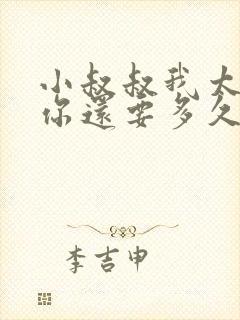 小叔叔我太
你還要多久
李吉申